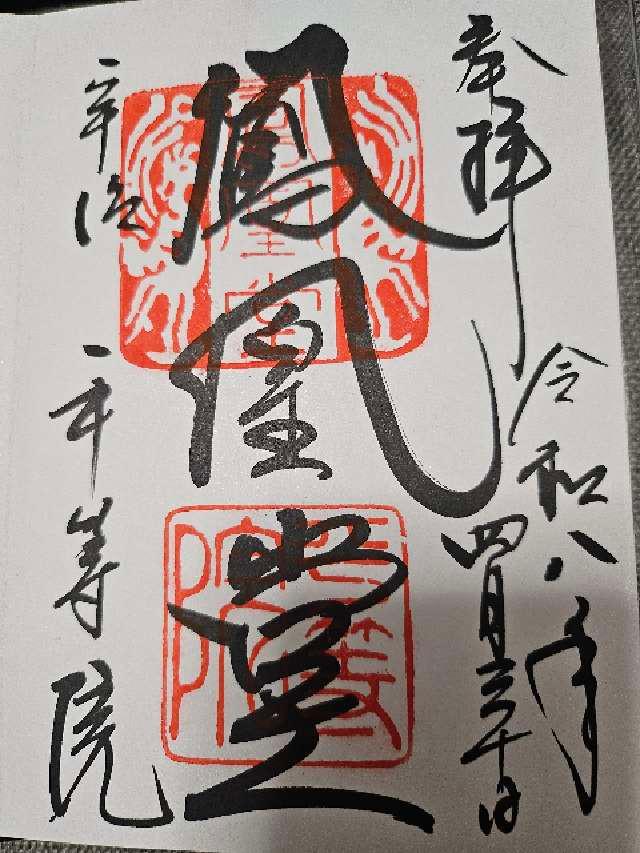 奉拝
令和八年
四月三十日
鳳凰堂
宇治
平等院
鳳凰堂
平等院